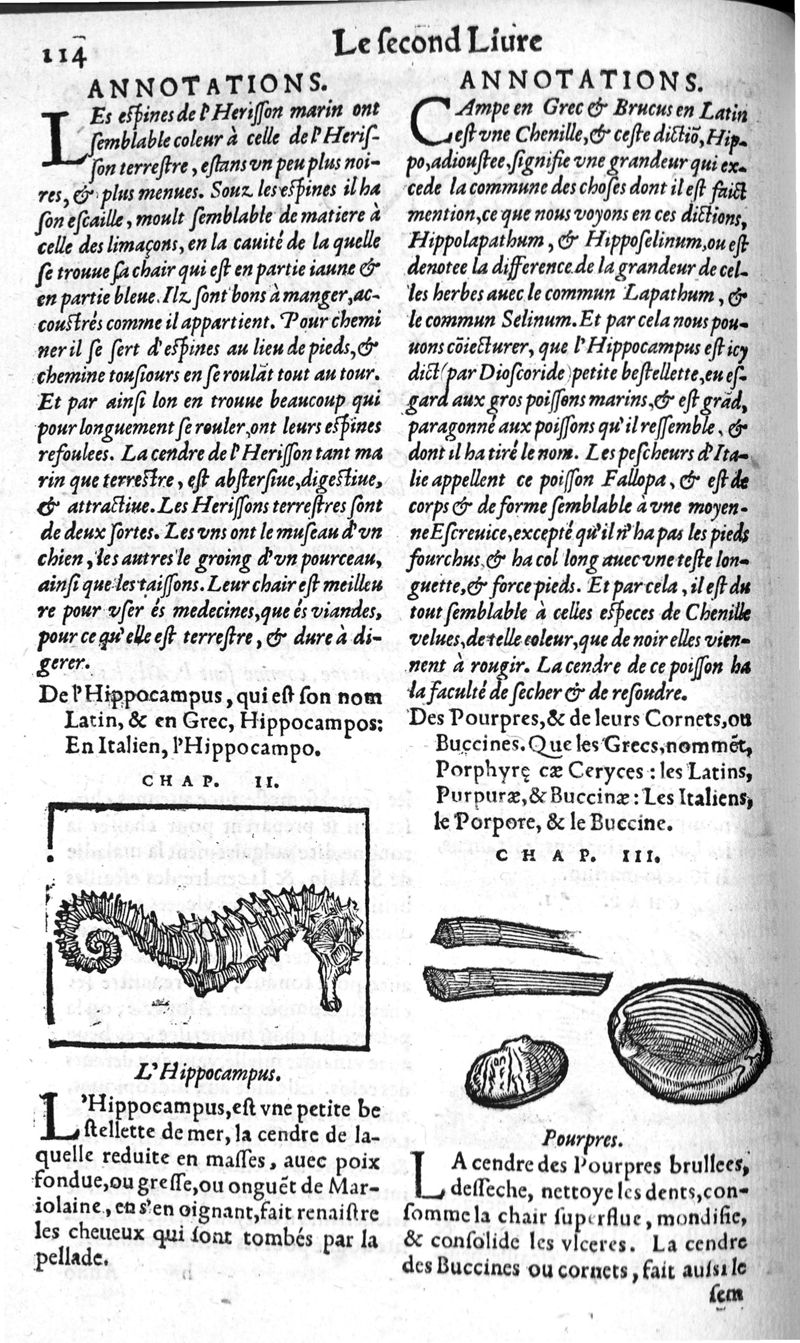 114
Le ſecond Liure
ANNOTATIONS.
LEs eſpines de l'Heriſſon marin ont
ſemblable coleur à celle de l'Heriſ-
ſon terreſtre, eſtans vn peu plus noi-
res, & plus menues. Souz les eſpines il ha
ſon eſcaille, moult ſemblable de matiere à
celle des limaçons, en la cauité de la quelle
ſe trouue ſa chair qui eſt en partie iaune &
en partie bleue. Ilz ſont bons à manger, ac-
couſtrés comme il appartient. Pour chemi
ner il ſe ſert d'eſpines au lieu de pieds, &
chemine touſiours en ſe roulãt tout au tour.
Et par ainſi lon en trouue beaucoup qui
pour longuement ſe rouler, ont leurs eſpines
refoulees. La cendre de l'Heriſſon tant ma
rin que terreſtre, eſt abſterſiue, digeſtiue,
& attractiue. Les Heriſſons terreſtres ſont
de deux ſortes. Les vns ont le muſeau d'vn
chien, les autres le groing d'vn pourceau,
ainſi que les taiſſons. Leur chair eſt meilleu
re pour vſer és medecines, que és viandes,
pour ce qu'elle eſt terreſtre, & dure à di-
gerer.
De l'Hippocampus, qui eſt ſon nom
Latin, & en Grec, Hippocampos:
En Italien, l'Hippocampo.
CHAP. II.
L'Hippocampus.
L'Hippocampus, eſt vne petite be
ſtellette de mer, la cendre de la-
quelle reduite en maſſes, auec poix
fondue, ou greſſe, ou onguẽt de Mar-
iolaine, en s'en oignant, fait renaiſtre
les cheueux qui ſont tombés par la
pellade.
ANNOTATIONS.
CAmpe en Grec & Brucus en Latin
eſt vne Chenille, & ceſte dictiõ, Hip-
po, adiouſtee, ſignifie vne grandeur qui ex-
cede la commune des choſes dont il eſt faict
mention, ce que nous voyons en ces dictions,
Hippolapathum, & Hippoſelinum, ou eſt
denotee la difference de la grandeur de cel-
les herbes auec le commun Lapathum, &
le commun Selinum. Et par cela nous pou-
uons cõiecturer, que l'Hippocampus eſt icy
dict (par Dioſcoride) petite beſtellette, eu eſ-
gard aux gros poiſſons marins, & eſt grãd,
paragonné aux poiſſons qu'il reſſemble, &
dont il ha tiré le nom. Les peſcheurs d'Ita-
lie appellent ce poiſſon Fallopa, & eſt de
corps & de forme ſemblable à vne moyen-
ne Eſcreuice, excepté qu'il n'ha pas les pieds
fourchus, & ha col long auec vne teſte lon-
guette, & force pieds. Et par cela, il eſt du
tout ſemblable à celles eſpeces de Chenille
velues, de telle coleur, que de noir elles vien-
nent à rougir. La cendre de ce poiſſon ha
la faculté de ſecher & de reſoudre.
Des Pourpres, & de leurs Cornets, ou
Buccines. Que les Grecs, nommẽt,
Porphyrę cæ Ceryces: les Latins,
Purpuræ, & Buccinæ: Les Italiens,
le Porpore, & le Buccine.
CHAP. III.
Pourpres.
LA cendre des Pourpres brullees,
deſſeche, nettoye les dents, con-
ſomme la chair ſuperflue, mondifie,
& conſolide les vlceres. La cendre
des Buccines ou cornets, fait auſsi le
ſem